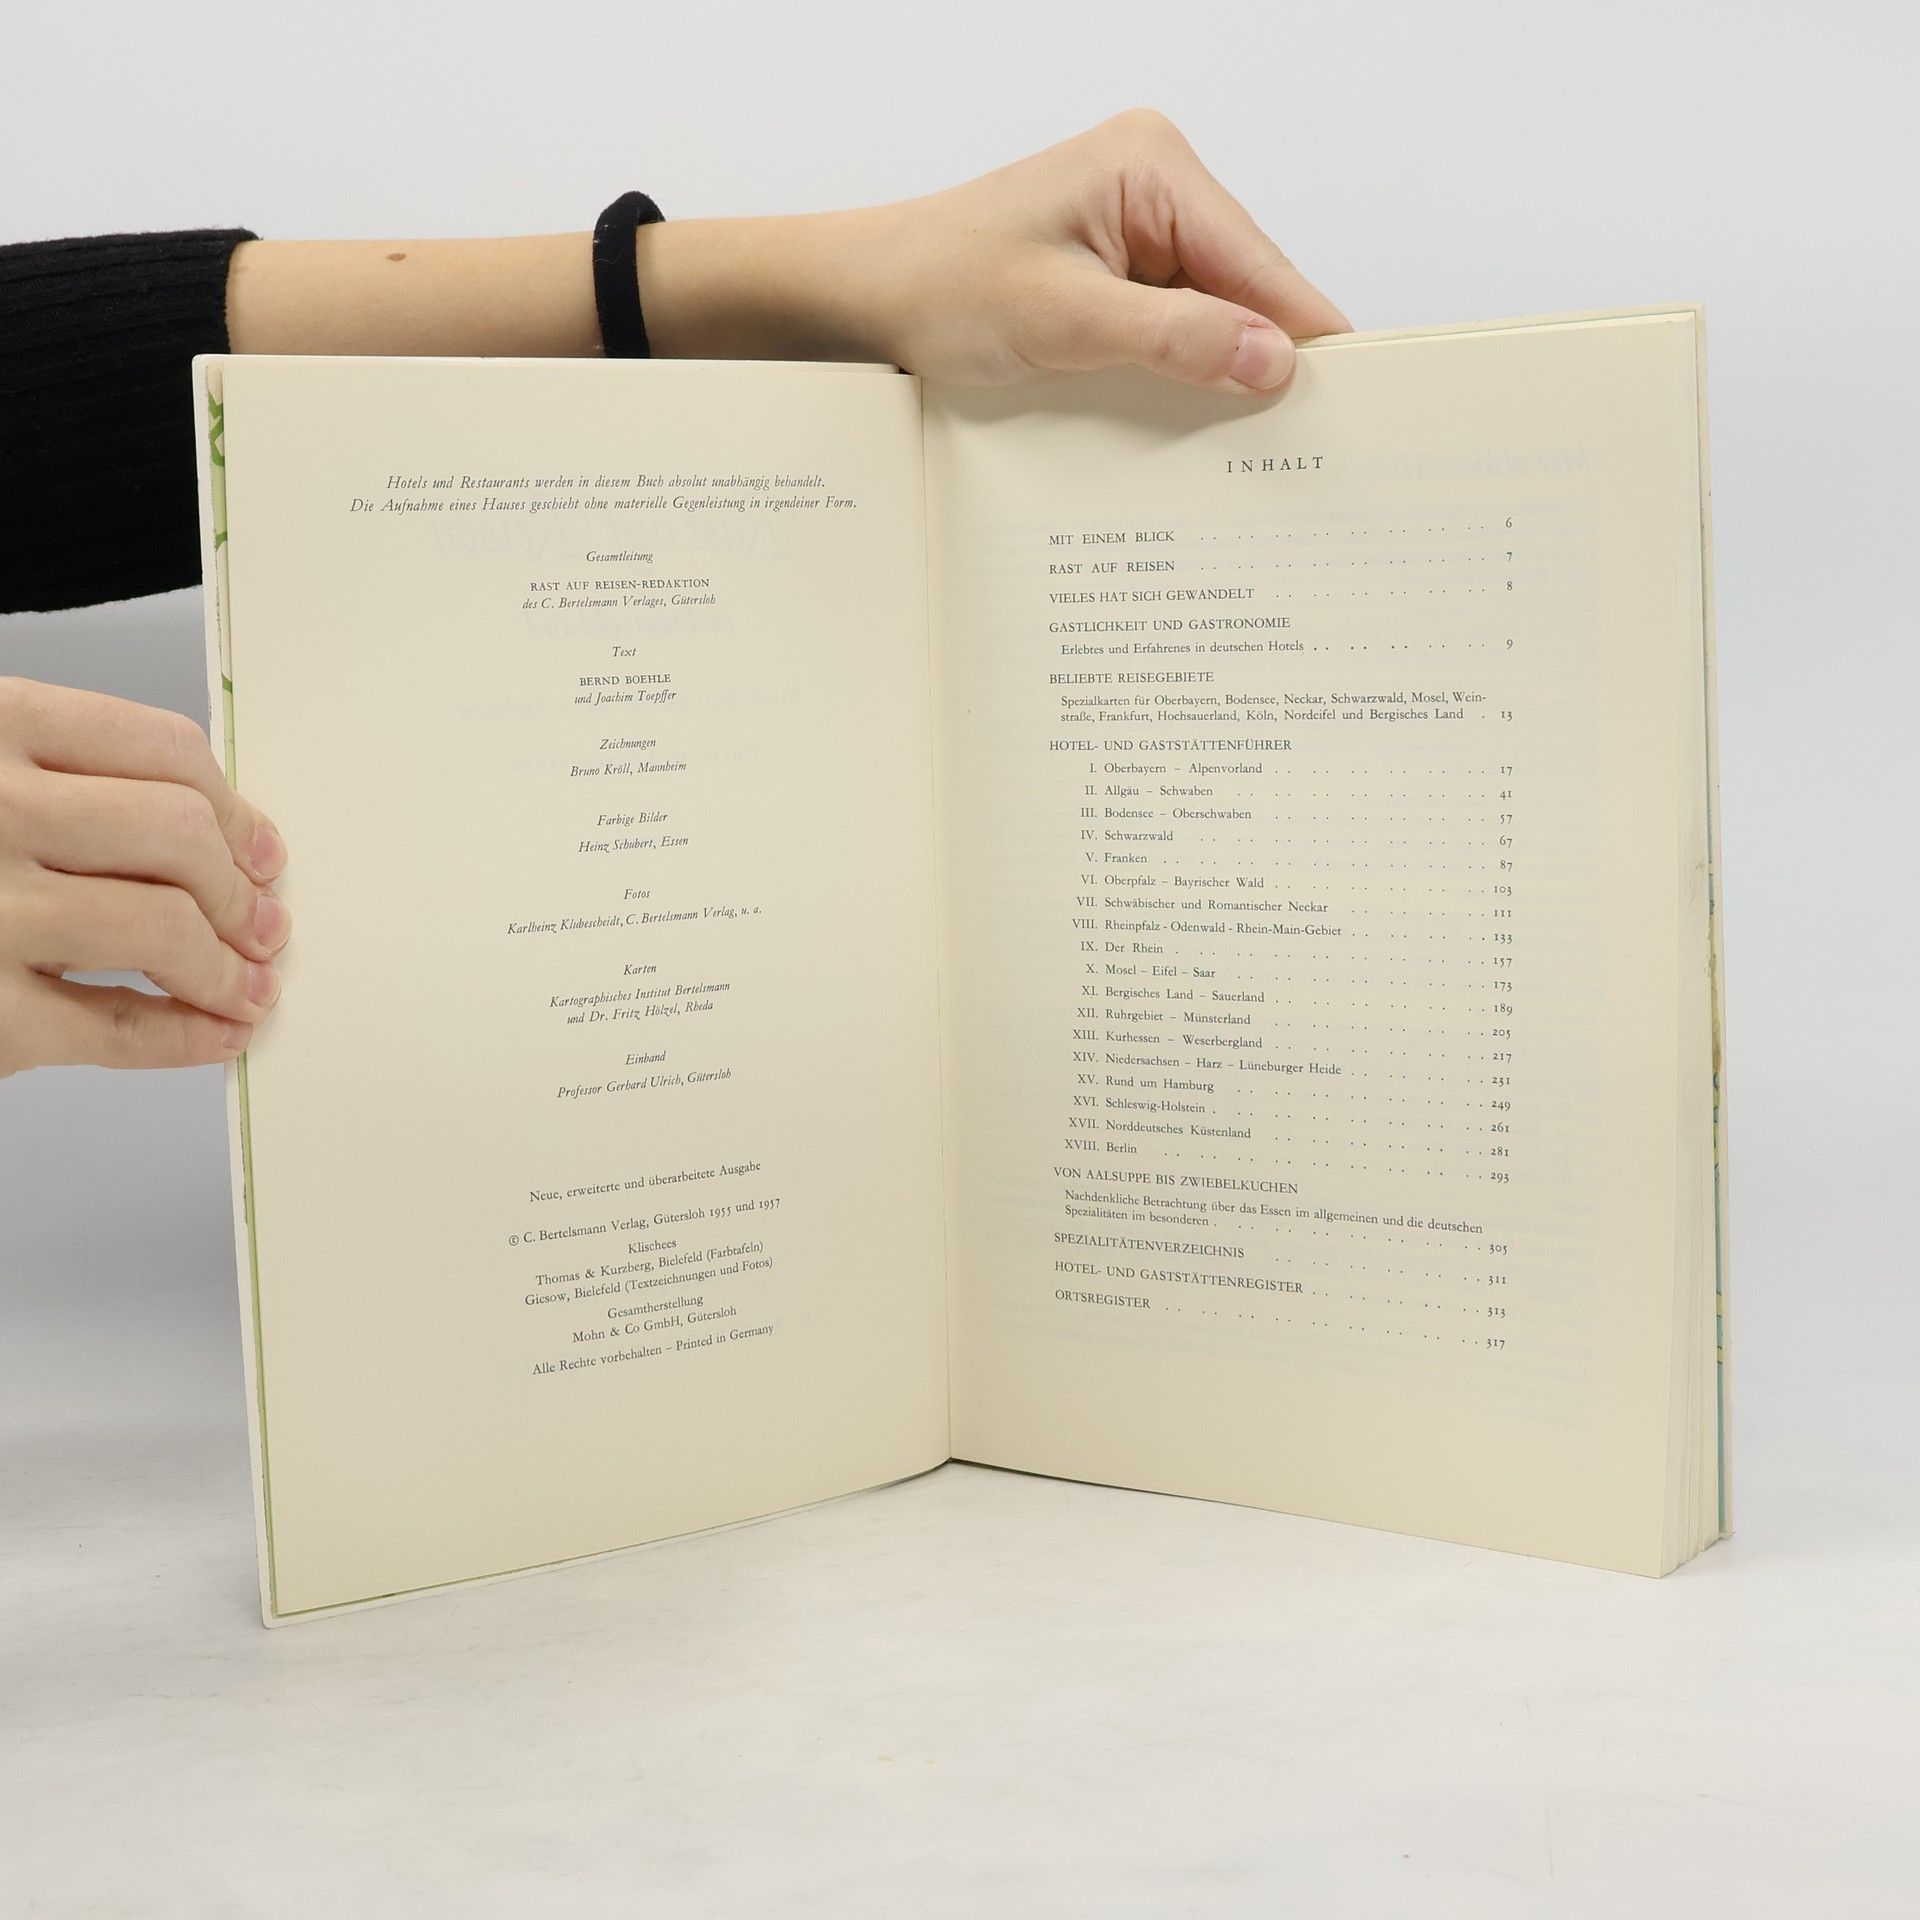 Hotels und Restaurants werden in diesem Buch absolut unabhängig behandelt.
Die Aufnahme eines Hauses geschieht ohne materielle Gegenleistung in irgendeiner Form.
Gesamtleitung
RAST AUF REISEN-REDAKTION
des C. Bertelsmann Verlages, Gütersloh
Text
BERND BOEHLE
und Joachim Toepffer
Zeichnungen
Bruno Kröll, Mannheim
Farbige Bilder
Heinz Schubert, Essen
Fotos
Karlheinz Klubescheidt, C. Bertelsmann Verlag, u. a.
Karten
Kartographisches Institut Bertelsmann
und Dr. Fritz Hölzel, Rheda
Einband
Professor Gerhard Ulrich, Gütersloh
Neue, erweiterte und überarbeitete Ausgabe
© C. Bertelsmann Verlag, Gütersloh 1955 und 1957
Klischees
Thomas & Kurzberg, Bielefeld (Farbtafeln)
Giesow, Bielefeld (Textzeichnungen und Fotos)
Gesamtherstellung
Mohn & Co GmbH, Gütersloh
Alle Rechte vorbehalten – Printed in Germany
INHALT
MIT EINEM BLICK . . . . . . . . 6
RAST AUF REISEN . . . . . . . . 7
VIELES HAT SICH GEWANDELT . . . . . . 8
GASTLICHKEIT UND GASTRONOMIE
Erlebtes und Erfahrenes in deutschen Hotels . . . . . . . 9
BELIEBTE REISEGEBIETE
Spezialkarten für Oberbayern, Bodensee, Neckar, Schwarzwald, Mosel, Wein-
straße, Frankfurt, Hochsauerland, Köln, Nordeifel und Bergisches Land . 13
HOTEL- UND GASTSTÄTTENFÜHRER
I. Oberbayern – Alpenvorland . . . . . . . 17
II. Allgäu – Schwaben . . . . . . . 41
III. Bodensee – Oberschwaben . . . . . . . 57
IV. Schwarzwald . . . . . . . . 67
V. Franken . . . . . . . . . 87
VI. Oberpfalz – Bayrischer Wald . . . . . . . 103
VII. Schwäbischer und Romantischer Neckar . . . . . . 111
VIII. Rheinpfalz - Odenwald - Rhein-Main-Gebiet . . . . . . 133
IX. Der Rhein . . . . . . . . . 157
X. Mosel – Eifel – Saar . . . . . . . 173
XI. Bergisches Land – Sauerland . . . . . . . 189
XII. Ruhrgebiet – Münsterland . . . . . . . 205
XIII. Kurhessen – Weserbergland . . . . . . . 217
XIV. Niedersachsen – Harz – Lüneburger Heide . . . . . . 231
XV. Rund um Hamburg . . . . . . . 249
XVI. Schleswig-Holstein . . . . . . . . 261
XVII. Norddeutsches Küstenland . . . . . . . 281
XVIII. Berlin . . . . . . . . . 293
VON AALSUPPE BIS ZWIEBELKUCHEN
Nachdenkliche Betrachtung über das Essen im allgemeinen und die deutschen
Spezialitäten im besonderen . . . . . . . . 305
SPEZIALITÄTENVERZEICHNIS . . . . . . . 311
HOTEL- UND GASTSTÄTTENREGISTER . . . . . . . 313
ORTSREGISTER . . . . . . . . . 317